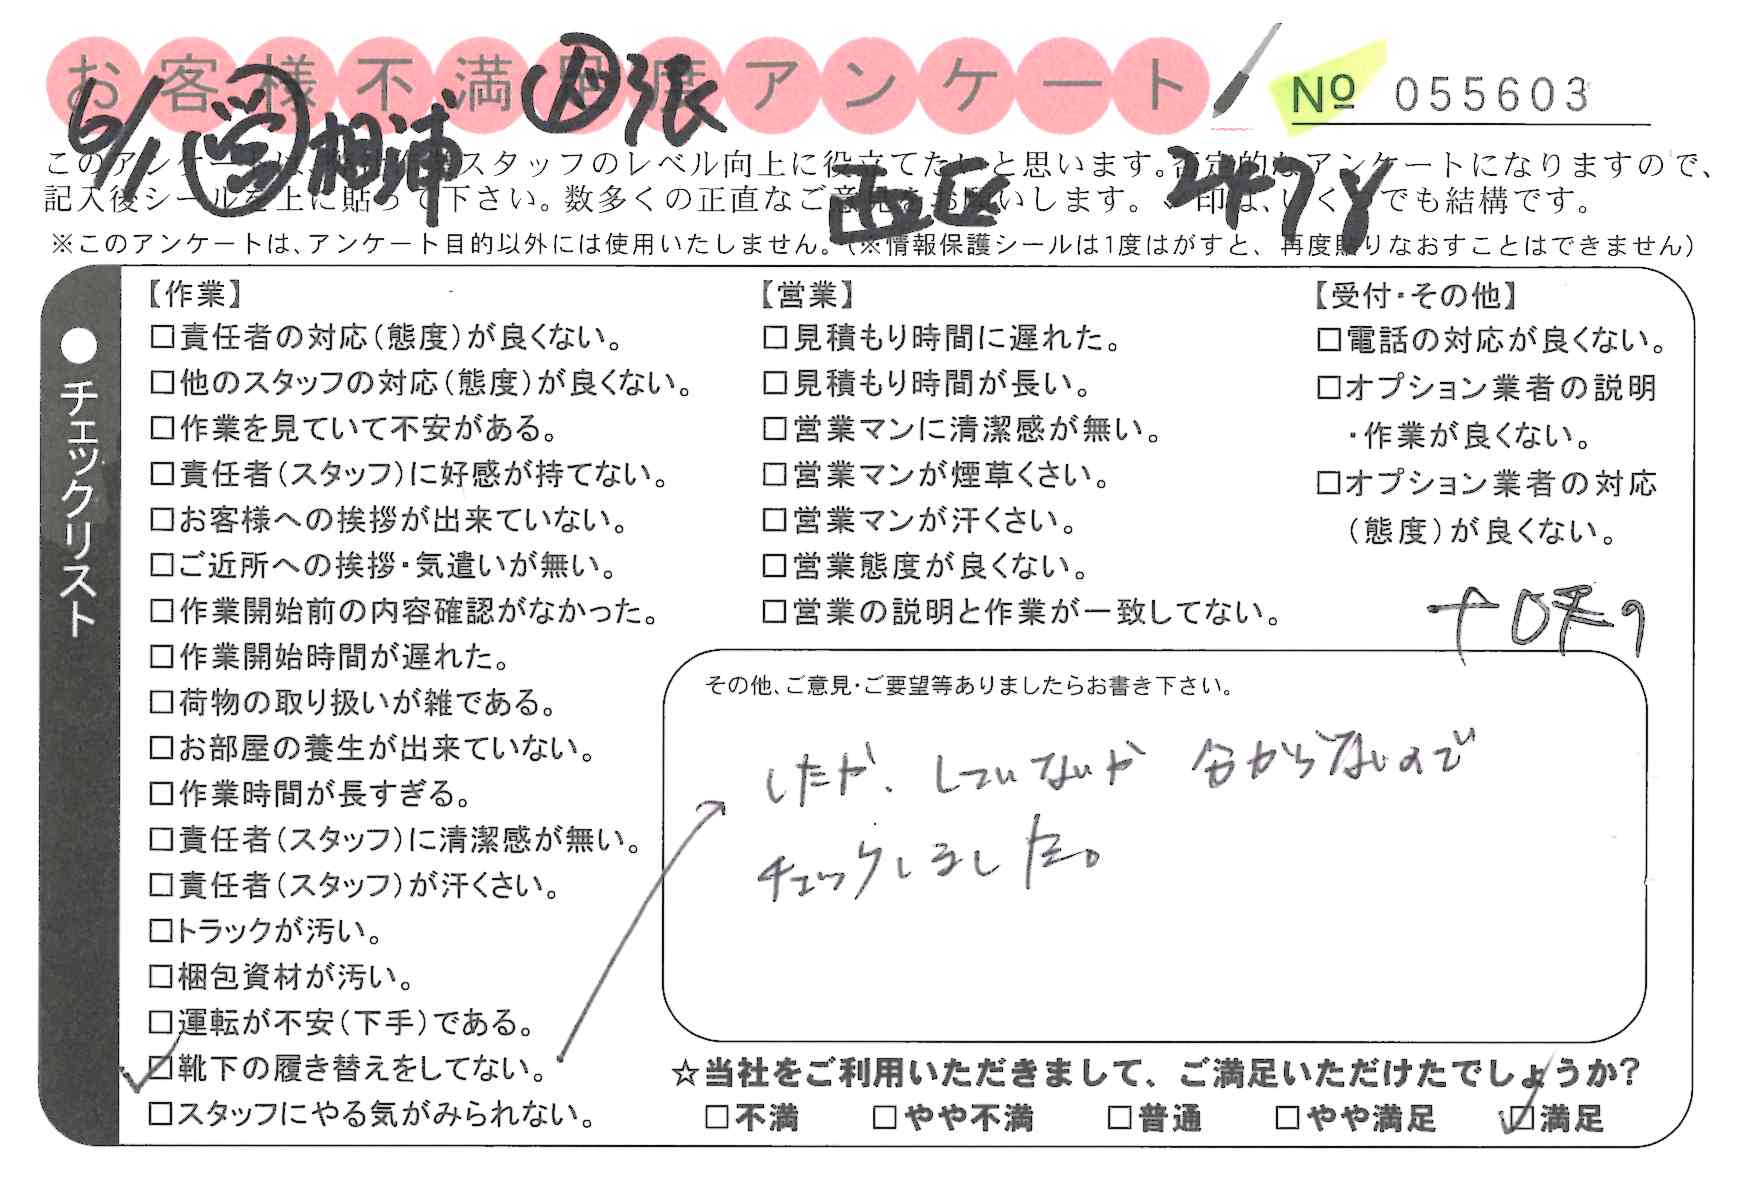 お客様不満足度アンケート
№ 055603
6/1 営 相浦 凶 張
西区 2478
このアンケートは、弊社作業スタッフのレベル向上に役立てたいと思います。否定的なアンケートになりますので、
記入後シールを上に貼って下さい。数多くの正直なご意見をお願いします。✓印は、いくつでも結構です。
※このアンケートは、アンケート目的以外には使用いたしません。(※情報保護シールは1度はがすと、再度貼りなおすことはできません)
●チェックリスト
【作業】
□責任者の対応(態度)が良くない。
□他のスタッフの対応(態度)が良くない。
□作業を見ていて不安がある。
□責任者(スタッフ)に好感が持てない。
□お客様への挨拶が出来ていない。
□ご近所への挨拶・気遣いが無い。
□作業開始前の内容確認がなかった。
□作業開始時間が遅れた。
□荷物の取り扱いが雑である。
□お部屋の養生が出来ていない。
□作業時間が長すぎる。
□責任者(スタッフ)に清潔感が無い。
□責任者(スタッフ)が汗くさい。
□トラックが汚い。
□梱包資材が汚い。
□運転が不安(下手)である。
☑靴下の履き替えをしてない。
□スタッフにやる気がみられない。
【営業】
□見積もり時間に遅れた。
□見積もり時間が長い。
□営業マンに清潔感が無い。
□営業マンが煙草くさい。
□営業マンが汗くさい。
□営業態度が良くない。
□営業の説明と作業が一致してない。
【受付・その他】
□電話の対応が良くない。
□オプション業者の説明
・作業が良くない。
□オプション業者の対応
(態度)が良くない。
その他、ご意見・ご要望等ありましたらお書き下さい。
したか、していないか 分からないので
チェックしました。
☆当社をご利用いただきまして、ご満足いただけたでしょうか?
□不満 □やや不満 □普通 □やや満足 ☑満足